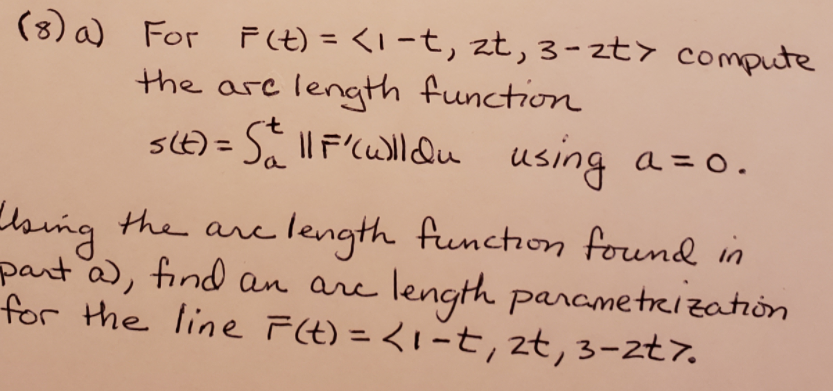 (8) a) For r̄(t) = <1-t, 2t, 3-2t> compute
the arc length function
s(t) = ∫ₐᵗ ||r̄'(u)|| du using a = 0.
Using the arc length function found in
part a), find an arc length parametrization
for the line r̄(t) = <1-t, 2t, 3-2t>.